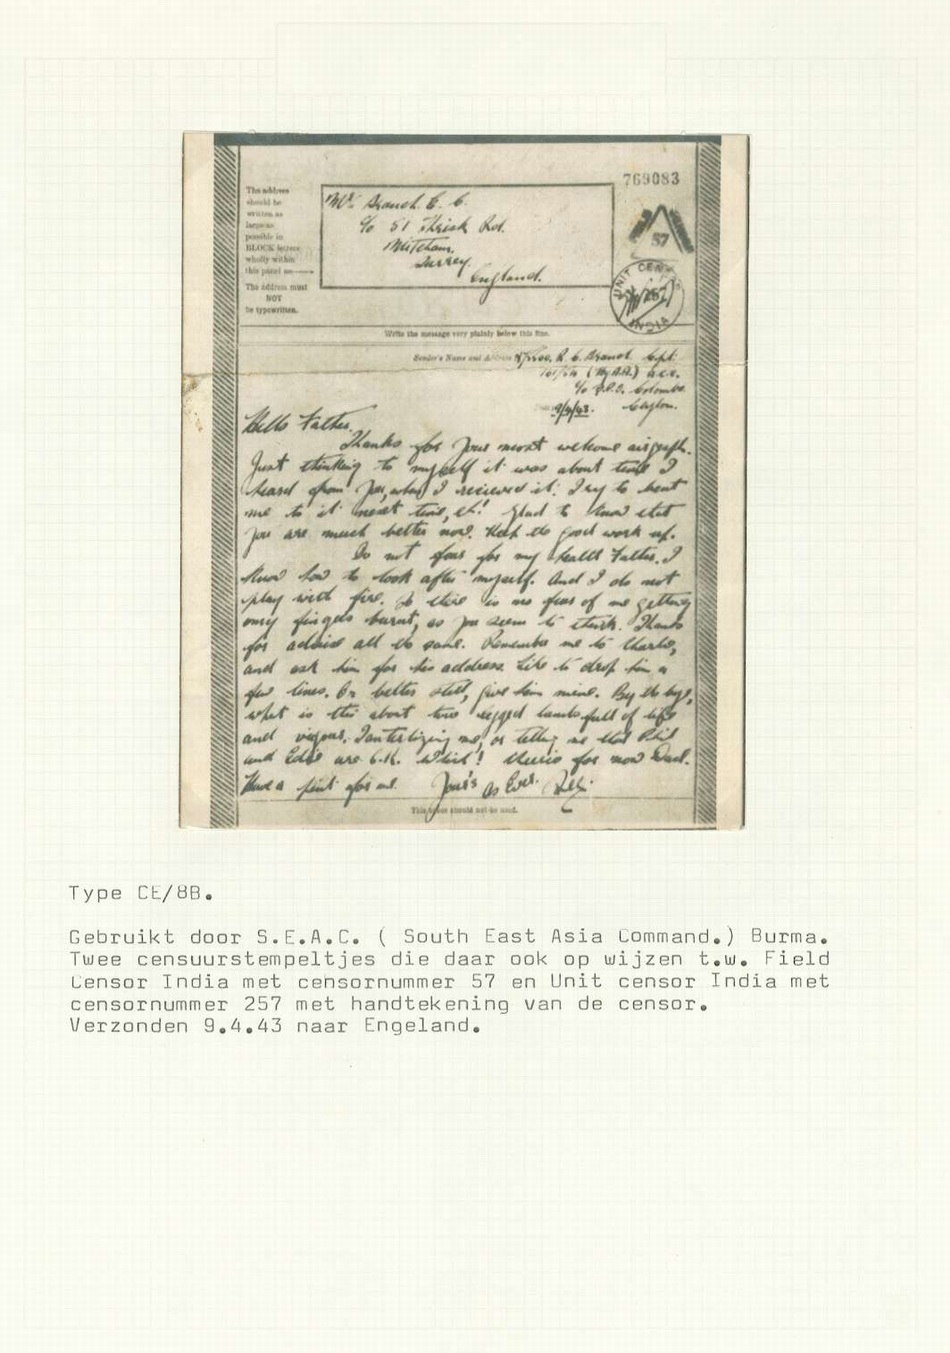 769083
The address
should be
written as
large as
possible in
BLOCK letters
wholly within
this panel
The address must
NOT
be typewritten.
Mr. Brandt. E. C.
c/o 51 Thirsk Rd.
Mitcham.
Surrey.
England.
57
UNIT CENSOR
257
INDIA
Write the message very plainly below this line.
Sender's Name and Address R. C. Brandt.
(Hy A.A.)
c/o Colombo
9/4/43. Ceylon.
Hello Father.
Thanks for your most welcome airgraph.
Just thinking to myself it was about time I
heard from you, when I recieved it. Try to beat
me to it next time, eh! Glad to know that
you are much better now. Keep the good work up.
Do not fear for my health Father. I
know how to look after myself. And I do not
play with fire. So there is no fear of me getting
my fingers burnt, as you seem to think. Thanks
for advice all the same. Remember me to Charlie,
and ask him for his address. Like to drop him a
few lines. Or better still, give him mine. By the bye,
what is this about two legged lambs full of life
and vigour. Tantilizing me, or telling me that
and Edie are O.K. Which! Cheerio for now Dad.
Have a pint for me. Your's as Ever.
This space should not be used.
Type CE/8B.
Gebruikt door S.E.A.C. ( South East Asia Command.) Burma.
Twee censuurstempeltjes die daar ook op wijzen t.w. Field
Censor India met censornummer 57 en Unit censor India met
censornummer 257 met handtekening van de censor.
Verzonden 9.4.43 naar Engeland.